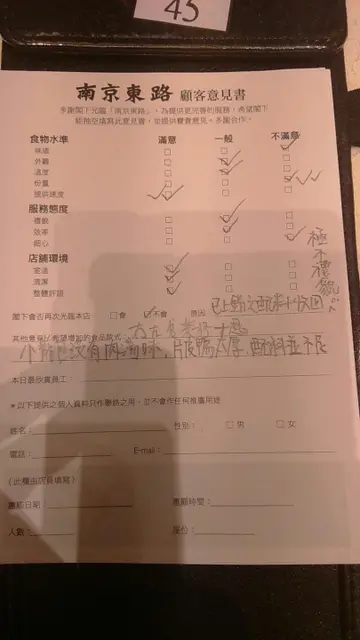 45
南京東路 顧客意見書
多謝閣下光臨「南京東路」，為提供更完善的服務，希望閣下
能抽空填寫此意見書，並提供寶貴意見。多謝合作。
食物水準 滿意 一般 不滿意
味道
外觀
溫度
份量
提供速度
服務態度
禮貌
效率
細心
極不禮貌
店舖環境
室溫
清潔
整體評語
閣下會否再次光臨本店 會 不會 原因
其他意見/希望增加的食品款式
小籠包沒有肉湯味，片皮鴨太厚，配料並不足
本日最欣賞員工：
*以下提供之個人資料只作聯絡之用，並不會作任何推廣用途
姓名： 性別： 男 女
電話： E-mail：
(此欄由店員填寫)
惠顧日期： 惠顧時間：
人數： 座位：